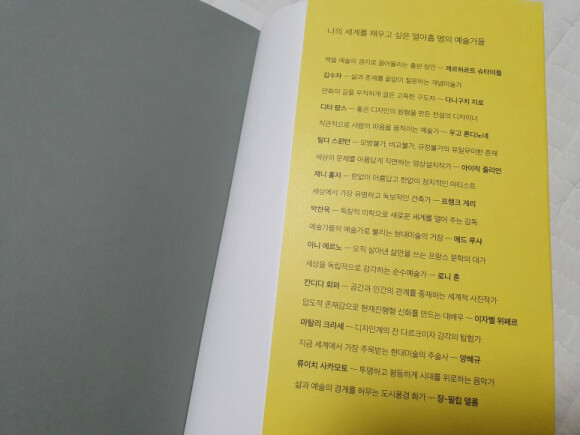 나의 세계를 채우고 싶은 열아홉 명의 예술가들
책을 예술의 경지로 끌어올리는 출판 장인 — 게르하르트 슈타이들
김수자 — 삶과 존재를 끝없이 질문하는 개념미술가
만화의 길을 우직하게 걸은 고독한 구도자 — 다니구치 지로
디터 람스 — 좋은 디자인의 원형을 만든 전설의 디자이너
직관적으로 사람의 마음을 움직이는 예술가 — 우고 론디노네
틸다 스윈턴 — 모방불가, 비교불가, 규정불가의 유일무이한 존재
세상의 문제를 아름답게 직면하는 영상설치작가 — 아이작 줄리언
제니 홀저 — 한없이 아름답고 한없이 정치적인 아티스트
세상에서 가장 유명하고 독보적인 건축가 — 프랭크 게리
박찬욱 — 독창적 미학으로 새로운 세계를 열어 주는 감독
예술가들의 예술가로 불리는 현대미술의 거장 — 에드 루샤
아니 에르노 — 오직 살아낸 삶만을 쓰는 프랑스 문학의 대가
세상을 독립적으로 감각하는 순수예술가 — 로니 혼
칸디다 회퍼 — 공간과 인간의 관계를 중재하는 세계적 사진작가
압도적 존재감으로 현재진행형 신화를 만드는 대배우 — 이자벨 위페르
마탈리 크라세 — 디자인계의 잔 다르크이자 감각의 탐험가
지금 세계에서 가장 주목받는 현대미술의 주술사 — 양혜규
류이치 사카모토 — 투명하고 평등하게 시대를 위로하는 음악가
삶과 예술의 경계를 허무는 도시풍경 화가 — 장-필립 델롬